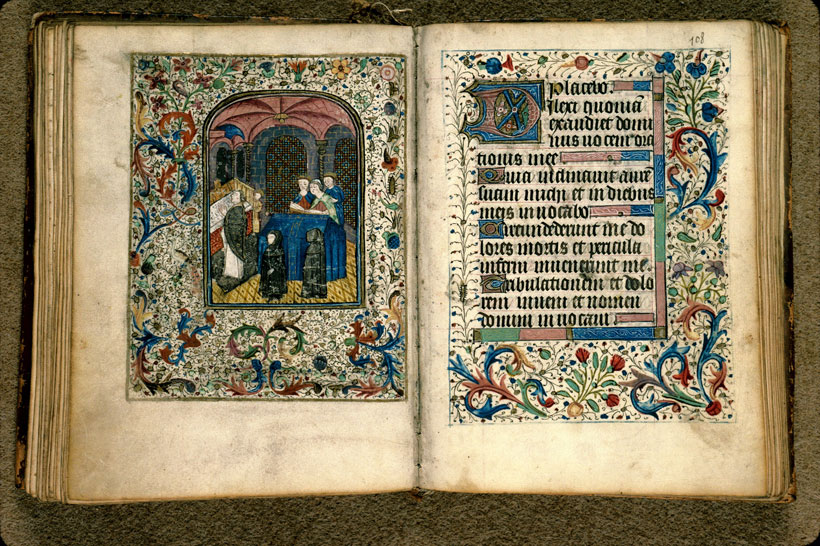 108
Placebo.
Dilexi quoniā
exaudiet domi
nus uocem ora
tionis mee
Quia inclinauit aurē
suam michi et in diebus
meis inuocabo
Circumdederunt me do
lores mortis et pericula
inferni inuenerunt me
Tribulationem et dolo
rem inueni et nomen
domini inuocaui